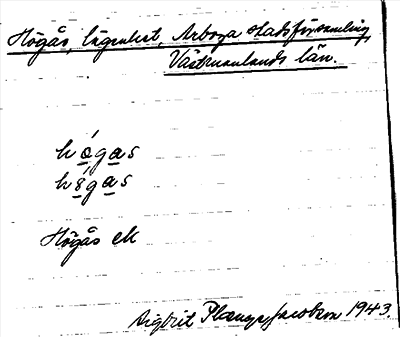 Högås, lägenhet, Arboga stadsförsamling,
Västmanlands län.
hógas
hǿgas
Högås ek
Sigbrit Plænge Jacobson 1943.